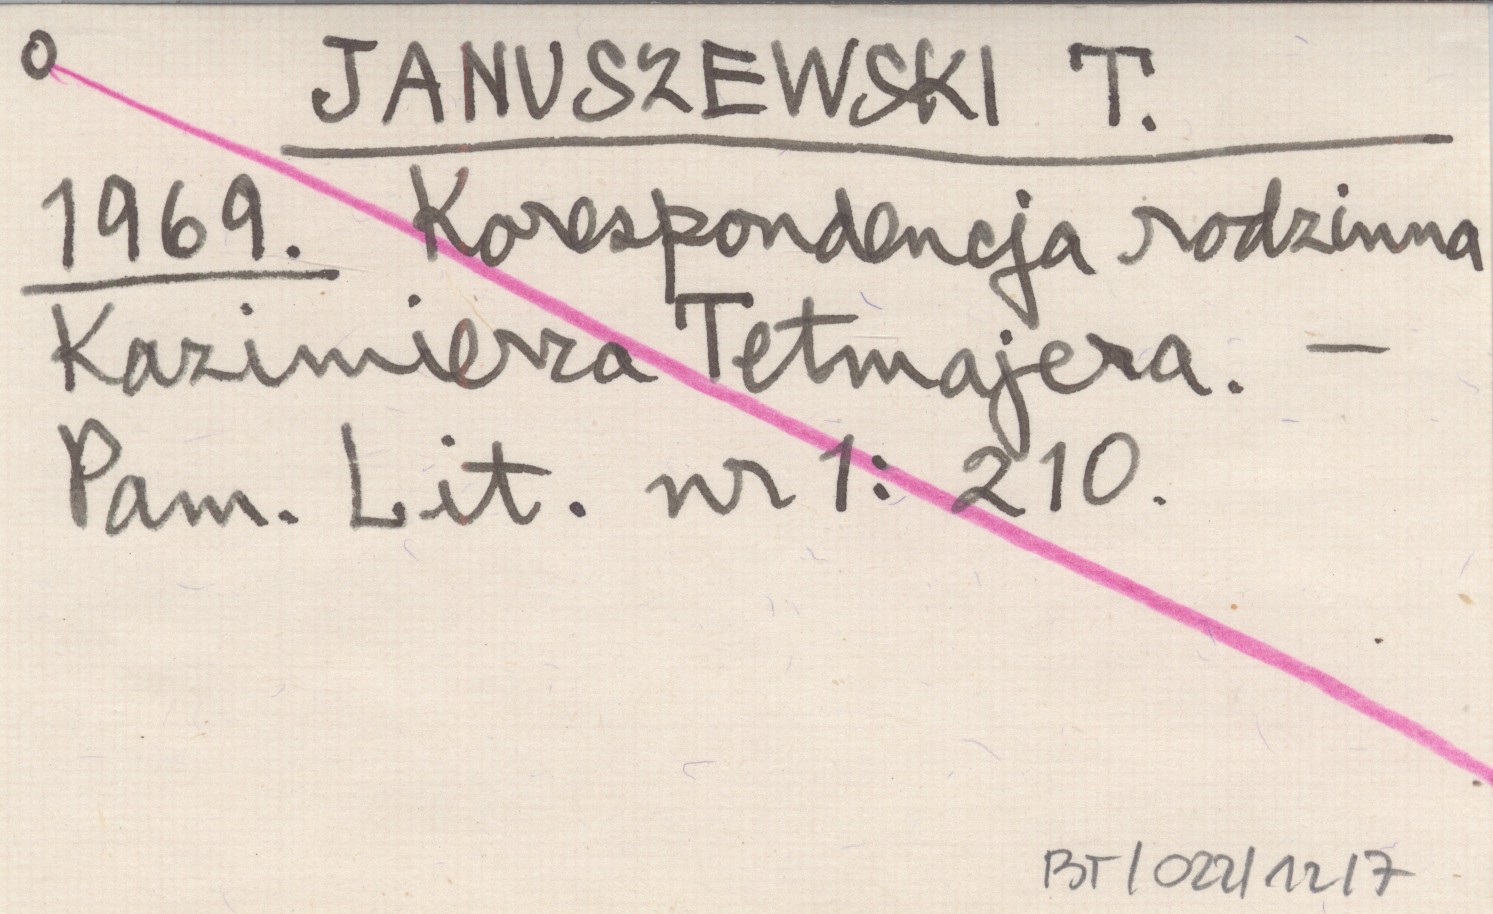 o JANUSZEWSKI T.
1969. Korespondencja rodzinna
Kazimierza Tetmajera. —
Pam. Lit. nr 1: 210.
BT/022/12/7